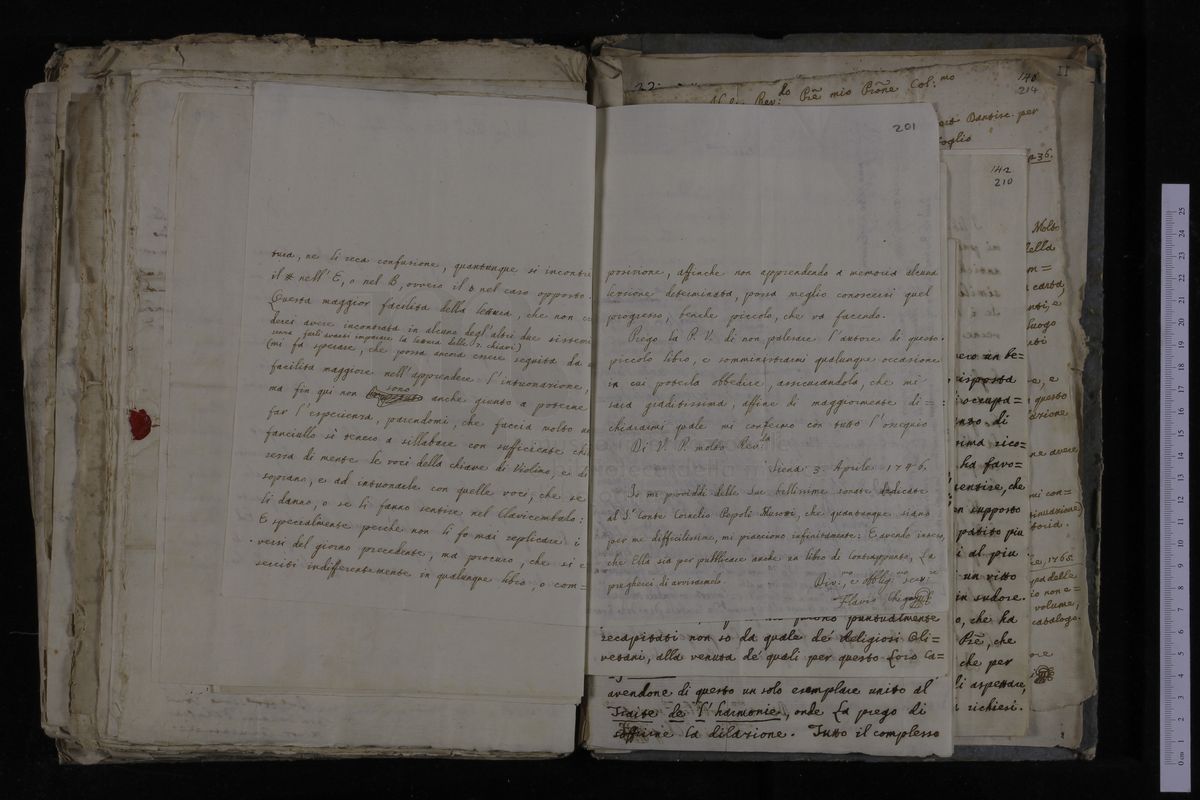 tura, ne li reca confusione, quantunque si incontri
il # nell' E, o nel B, ovvero il b nel caso opposto.
Questa maggior facilità della lettura, che non
dersi avere incontrata in alcuno degl' altri due sistemi
senza farli avanti imparare la lettura delle 7. chiavi)
(mi fà sperare, che possa ancora essere seguita da
facilità maggiore nell' apprendere l' intuonazione,
sono
ma fin qui non anche giunto a poterne
far l' esperienza, parendomi, che faccia molto un
fanciullo sì tenero a sillabare con sufficiente
rezza di mente le voci della chiave di Violino, e di
soprano, e ad intuonarle con quelle voci, che se
li danno, o se li fanno sentire nel Clavicembalo:
E specialmente perche non li fo mai replicare i
versi del giorno precedente, ma procuro, che si e
serciti indifferentemente in qualunque libro, o com=
201
posizione, affinche non apprendendo a memoria alcuna
lezzione determinata, possa meglio conoscersi quel
progresso, benche piccolo, che va facendo.
Prego la P. V. di non palesare l' autore di questo
piccolo libro, e somministrarmi qualunque occasione
in cui poterla obbedire, assicurandola, che mi
sarà graditissima, affine di maggiormente di=
chiararmi quale mi confermo con tutto l' ossequio
Di V. P. molto Rev.da
Siena 3. Aprile 1746.
Io mi providdi delle sue bellissime sonate dedicate
al S.r Conte Cornelio Pepoli Musotti, che quantunque siano
per me difficilissime, mi piacciono infinitamente: E avendo inteso,
che Ella sia per pubblicare anche un libro di Contrappunto, La
pregherei di avvisarmelo.
Div.mo, e obblig.mo serv.re
Flavio Chigi
puntualmente
recapitati non so da quale de' Religiosi Oli=
vetani, alla venuta de' quali per questo Loro Ca=
avendone di questo un solo esemplare unito al
Traité de l' harmonie, onde La prego di
soffrirne la dilazione. Tutto il complesso
22.
Rev:do Pre mio Prone Col:mo
140
214
II
per
foglio
36.
142
210
Molto
della
carta,
luogo
e questo
ne avere
mi con=
tinuazione
1765.
volume,
catalogo.
ero un be=
risposta
occupa=
di
rico=
ha favo=
sentire, che
supposto
patito piu
al piu
un vitto
in sudore.
o, che ha
Pre, che
che per
aspettare,
richiesi.
0 cm 1 2 3 4 5 6 7 8 9 10 11 12 13 14 15 16 17 18 19 20 21 22 23 24 25